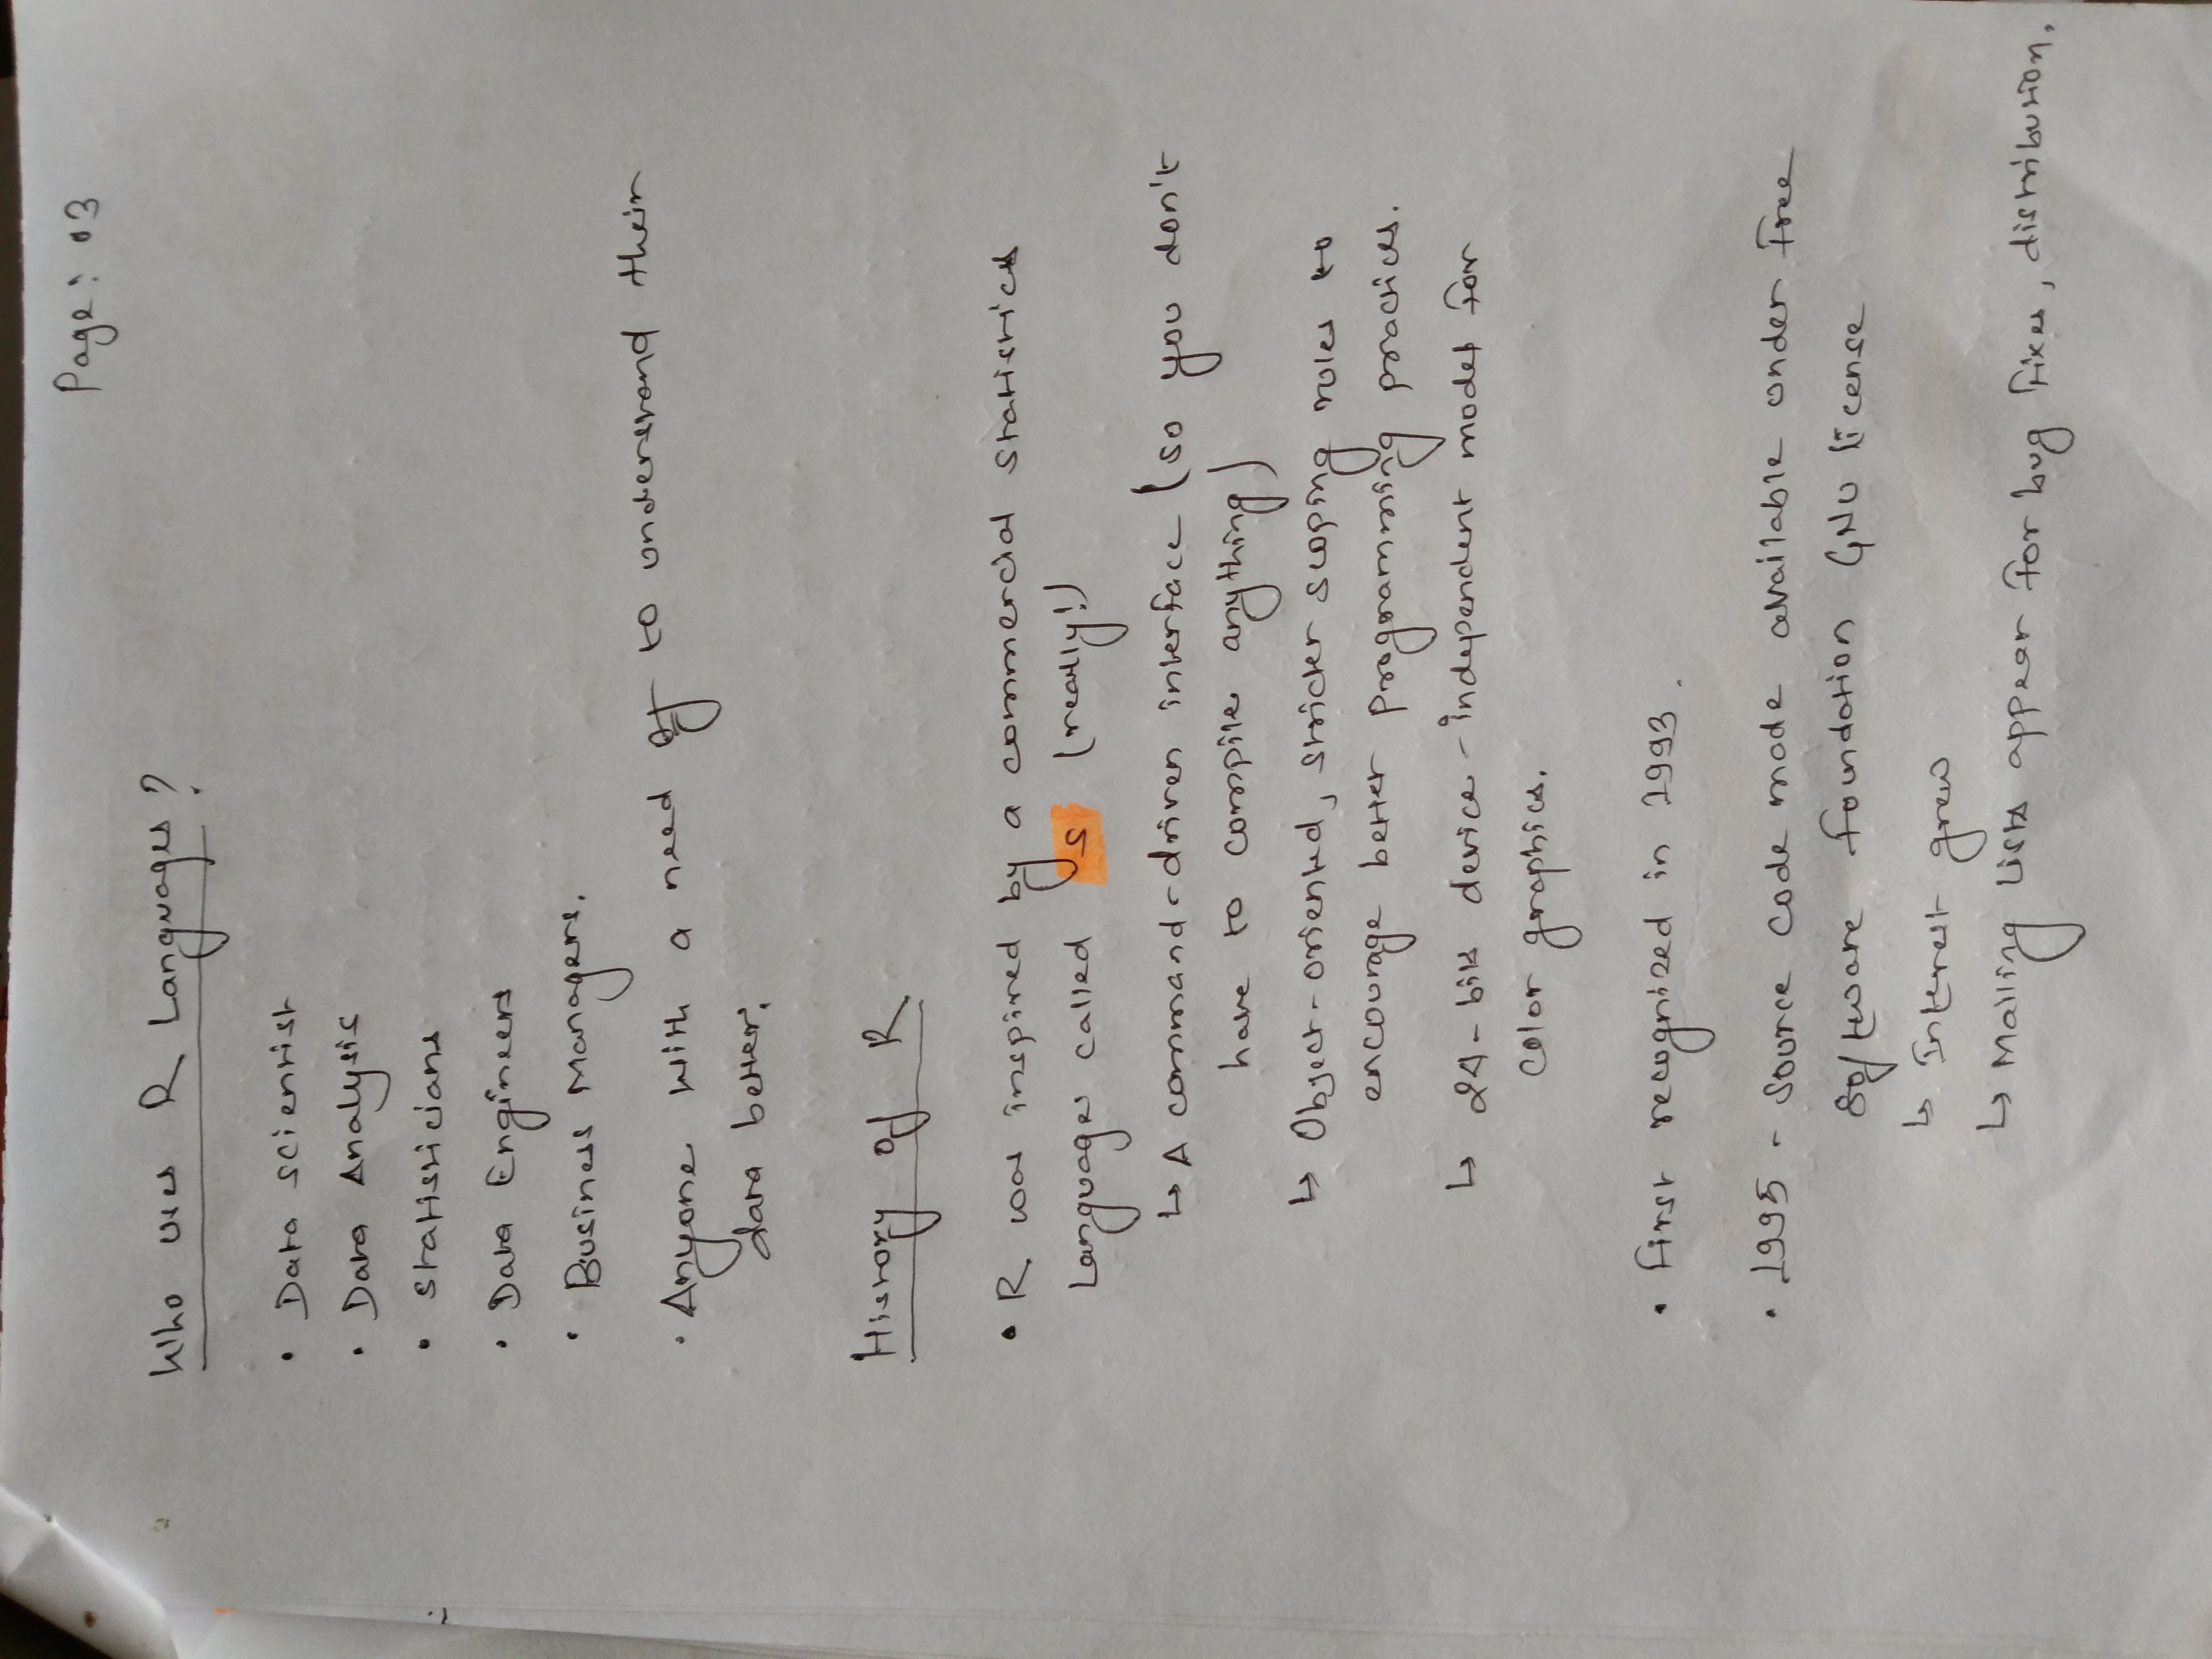 Page: 03
Who uses R Languages?
• Data scientist
• Data Analysis
• Statisticians
• Data Engineers
• Business Managers.
• Anyone with a need of to understand their
data better.
History of R
• R was inspired by a commercial statistics
Language called S (really!)
↳ A command-driven interface (so you don't
have to compile anything)
↳ Object-oriented, stricter scoping rules to
encourage better programming practices.
↳ 24-bits device-independent model for
color graphics.
• First recognized in 1993.
• 1995 - Source code made available under free
software foundation GNU license
↳ Interest grew
↳ Mailing Lists appear for bug fixes, distribution.